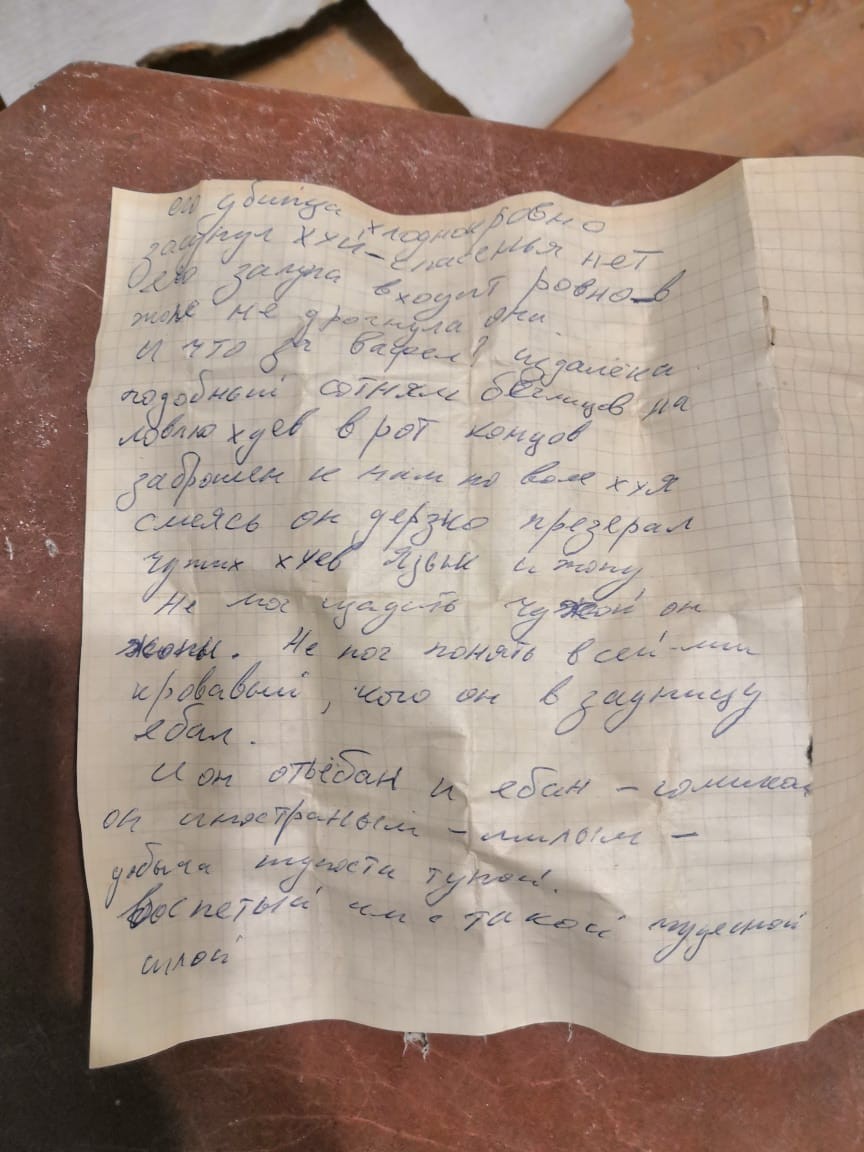 его убийца хладнокровно
засунул хуй - спасенья нет
его залупа входит ровно в
жопе не дрогнула она
и что за вафел? издалека
подобный сотням беглицов на
ловлю хуев в рот концов
заброшен к нам по воле хуя
смеясь он дерзко презерал
чужих хуев язык и жопу
Не мог щадить чужой он
жопы. Не мог понять в сей миг
кровавый, кого он в задницу
ебал.
И он отъёбан и ебан -
он иностраным - милым -
добыча тупости тупой.
Воспетый им с такой чудесной
силой